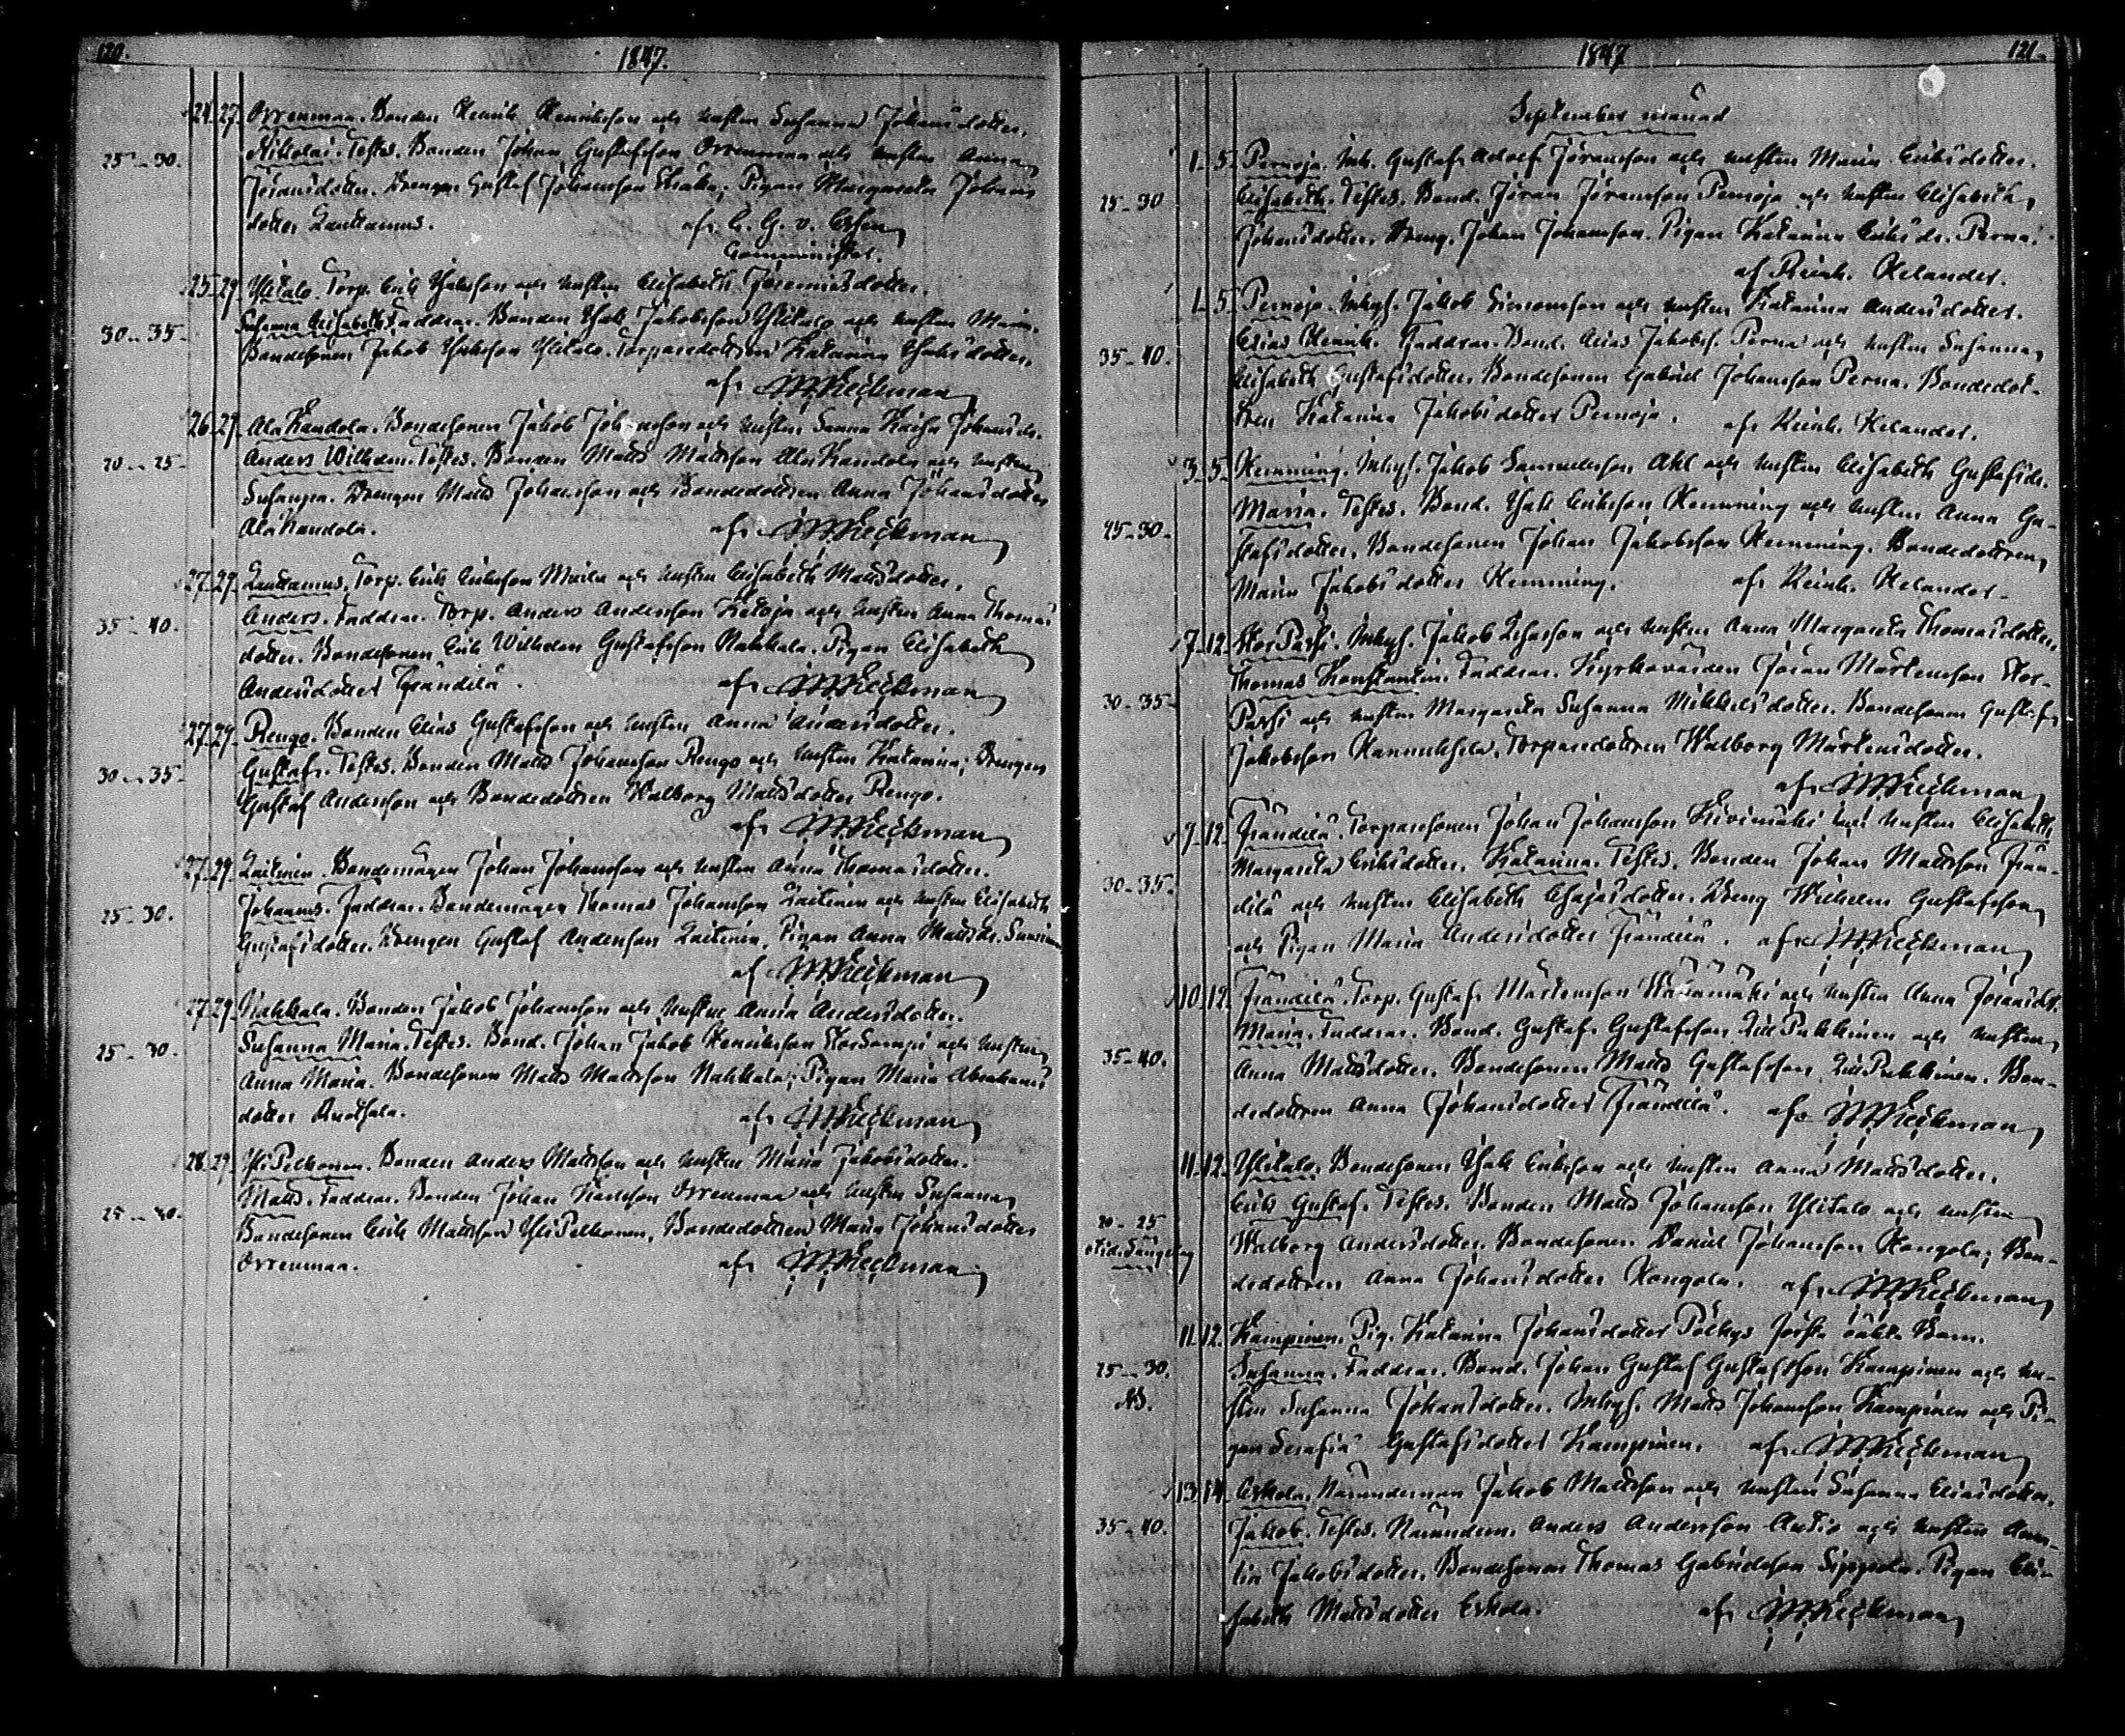 120.
1847.
24. 27. Orrenmaa. Bonden Henrik Henriksson och hustrun Susanna Johansdotter.
25–30. Nikolai. Testes. Bonden Johan Gustafsson Orrenmaa och hustrun Anna
Jöransdotter. Drengen Gustaf Johansson Pigan Margareta Johans
dotter Lauttamus. af C. G. v. Essen
Comminister.
25. 29. Ylitalo. Torp. Erik Isaksson och hustrun Elisabeth Jeremiasdotter.
30–35. Susanna Elisabeth. Faddrar. Bonden Isak Jakobsson Ylitalo och hustrun Maria.
Bondesonen Jakob Isaksson Ylitalo. Torparedottren Katarina Isaksdotter.
af
26. 29. AlaKandola. Bondesonen Jakob Johansson och hustrun Sanna Kaisa Johansdr.
20–25. Anders Wilhelm. Testes. Bonden Matts Mattsson AlaKandola och hustrun
Susanna. Drengen Matts Johansson och Bondedottren Anna Johansdotter
AlaKandola. af
27. 29. Lauttamus. Torp. Erik Eriksson och hustrun Elisabeth Mattsdotter.
35–40. Anders. Faddrar. Torp. Anders Andersson Ketoja och hustrun Anna Thomas
dotter. Bondesonen Erik Wilhelm Gustafsson Nahkala. Pigan Elisabeth
Andersdotter Frändilä. af
27. 29. Rengo. Bonden Elias Gustafsson och hustrun Anna Andersdotter.
30–35. Gustaf. Testes. Bonden Matts Johansson Rengo och hustrun Katarina; Drengen
Gustaf Andersson och Bondedottren Walborg Mattsdotter Rengo.
af
27. 29. Laitinen. Bondemågen Johan Johansson och hustrun Anna Thomasdotter.
25–30. Johannes. Faddrar. Bondemågen Thomas Johansson Laitinen och hustrun Elisabeth
Gustafsdotter. Drengen Gustaf Andersson Laitinen, Pigan Anna Mattsdr.
af
27. 29. Nahkala. Bonden Jakob Johansson och hustrun Anna Andersdotter.
25–30. Susanna Maria. Testes. Bond. Johan Jakob Henriksson StorSampi och hustrun
Anna Maria. Bondesonen Matts Mattsson Nahkala; Pigan Maria Abrahams
dotter af
28. 29. YliPelkonen. Bonden Anders Mattsson och hustrun Maria Jakobsdotter.
25–30. Matts. Faddrar. Bonden Johan Karlsson Orrenmaa och hustrun Susanna,
Bondesonen Erik Mattsson YliPelkonen, Bondedottren Maria Johansdotter
Orrenmaa. af
1847
121.
September månad
1. 5. Pernoja. Inh. Gustaf Adolf Jöransson och hustrun Maria Eriksdotter.
25–30 Elisabeth. Testes. Bond. Jöran Jöransson Pernoja och hustrun Elisabeth
Johansdotter, Dreng. Johan Johansson. Pigan Katarina Eriksdr. Perna.
af Reinh. Helander.
1. 5. Pernoja. Inhys. Jakob Simonsson och hustrun Katarina Andersdotter.
35–40. Elias Henrik. Faddrar. Bond. Elias Jakobss. Perna och hustrun Susanna
Elisabeth Gustafsdotter. Bondesonen Gabriel Johansson Perna. Bondedot-
tren Katarina Jakobsdotter Pernoja. af Reinh. Helander.
3. 5. Hemming. Inhys. Jakob Samuelsson Ahl och hustrun Elisabeth Gustafsdr.
25–30. Maria. Testes. Bond. Isak Eriksson Hemming och hustrun Anna Gu-
stafsdotter, Bondesonen Johan Jakobsson Hemming. Bondedottren
Maria Jakobsdotter Hemming. af Reinh. Helander.
7. 12. StorPassi. Inhys. Jakob och hustrun Anna Margareta Thomasdotter.
30–35. Thomas Konstantin. Faddrar. Kyrkovärden Jöran Mårtensson Stor-
Passi och hustrun Margareta Susanna Mikkelsdotter. Bondesonen Gustaf
Jakobsson Hannuksela. Torparedottren Walborg Mårtensdotter.
af
9. 12. Frändilä. Torparesonen Johan Johansson Kivimäki och hustrun Elisabeth
30–35. Margareta Eriksdotter. Katarina. Testes. Bonden Johan Mattsson Frän-
dilä och hustrun Elisabeth Esajasdotter. Dreng Wilhelm Gustafsson
och Pigan Maria Andersdotter Frändilä. af
10. 12. Frändilä. Torp. Gustaf Mårtensson och hustrun Anna Jöransdr.
35–40. Maria. Faddrar. Bond. Gustaf Gustafsson LillPukkinen och hustrun
Anna Mattsdotter. Bondesonen Matts Gustafsson LillPukkinen. Bon-
dedottren Anna Johansdotter Frändilä. af
11. 12. Ylitalo. Bondesonen Isak Eriksson och hustrun Anna Mattsdotter.
Erik Gustaf. Testes. Bonden Matts Johansson Ylitalo och hustrun
20–25 Walborg Andersdotter. Bondesonen Daniel Johansson Kangola; Bon-
dedottren Anna Johansdotter Kangola. af
11. 12. Kampinen. Pig. Katarina Johansdotter första oäkta Barn.
25–30. Susanna. Faddrar. Bond. Johan Gustaf Gustafsson Kampinen och hu-
strun Susanna Johansdotter. Inhys. Matts Johansson Kampinen och Pi-
gan Serafia Gustafsdotter Kampinen. af
13. 14. Eskola. Nämndeman Jakob Mattsson och hustrun Susanna Eliasdotter.
35–40. Jakob. Testes. Nämndem. Anders Andersson Autio och hustrun Ama-
lia Jakobsdotter. Bondesonen Thomas Gabrielsson Sippola. Pigan Eli-
sabeth Mattsdotter Eskola. af